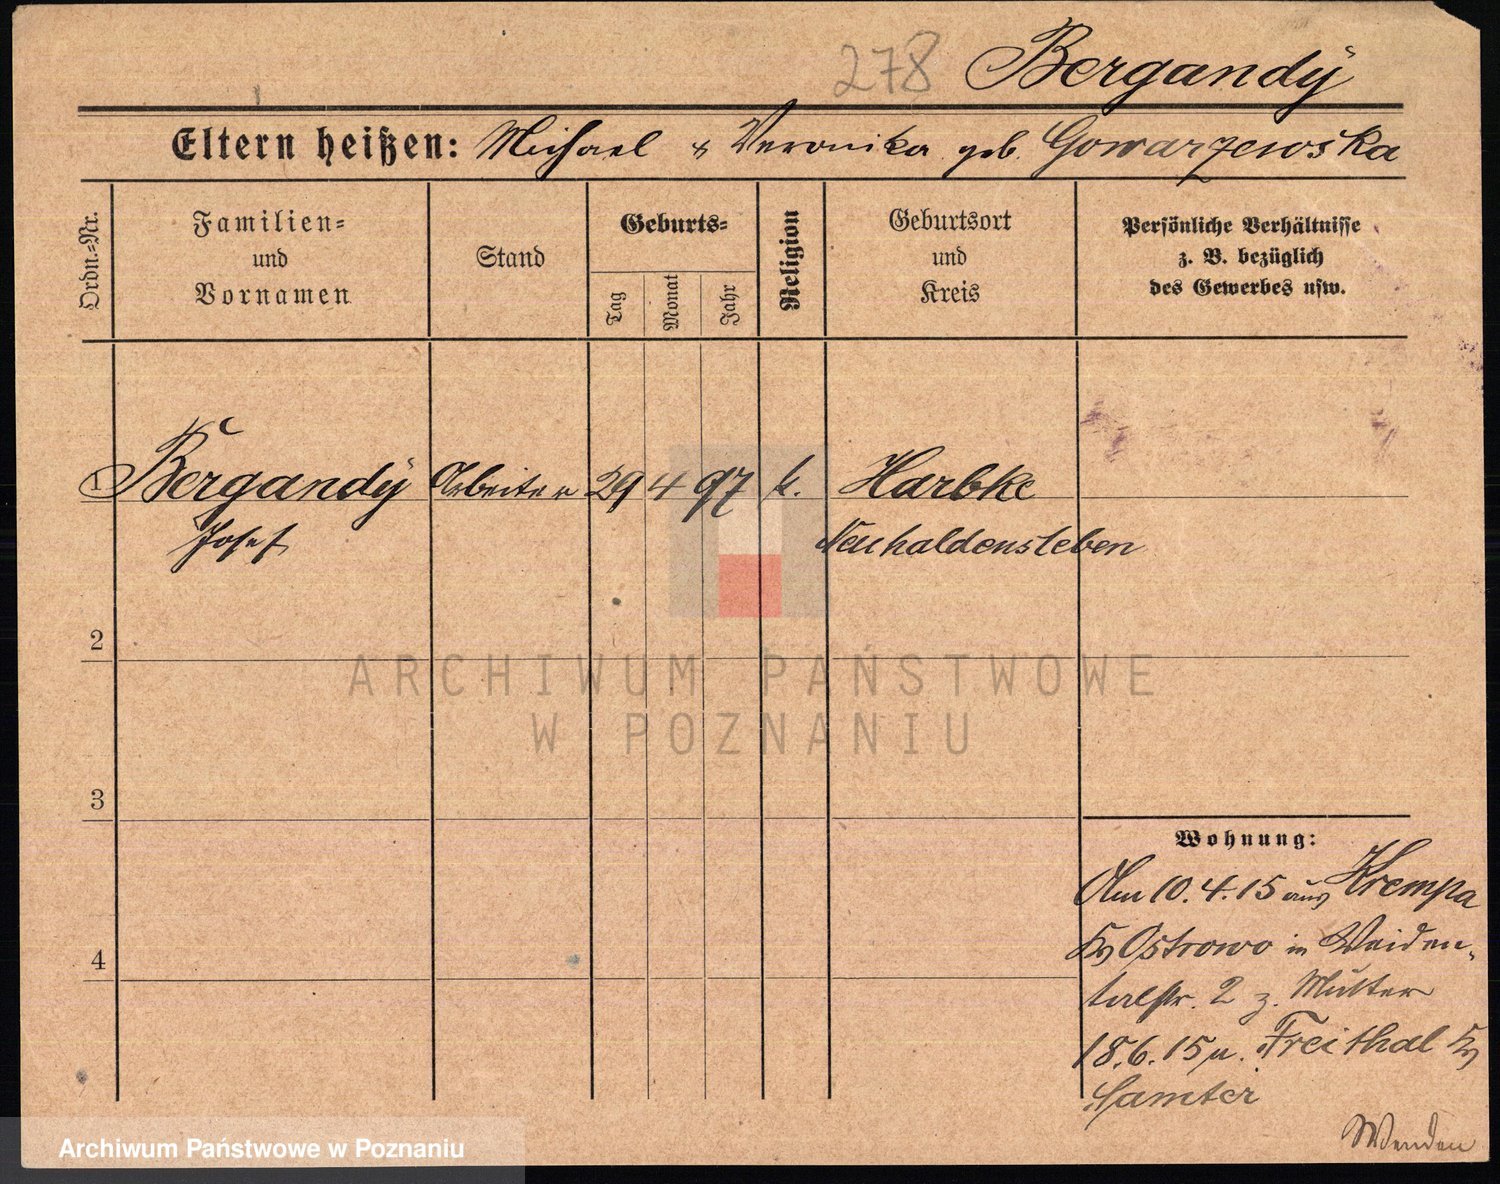 278 Bergandÿ
Eltern heißen: Michael & Veronika geb. Gowarzewska
Ordn.-Nr.
Familien- und Vornamen
Stand
Geburts-
Tag
Monat
Jahr
Religion
Geburtsort und Kreis
Persönliche Verhältnisse
z. B. bezüglich
des Gewerbes usw.
1 Bergandÿ Arbeiter 29 4 97 k. Harbke
Josef Neuhaldensleben
2
ARCHIWUM PAŃSTWOWE
W POZNANIU
3
Wohnung:
Am 10.4.15 aus Krempa
Kr Ostrowo in Weiden-
talstr. 2 z. Mutter
4
18.6.15 n. Freithal Kr
Samter
Wenden
Archiwum Państwowe w Poznaniu